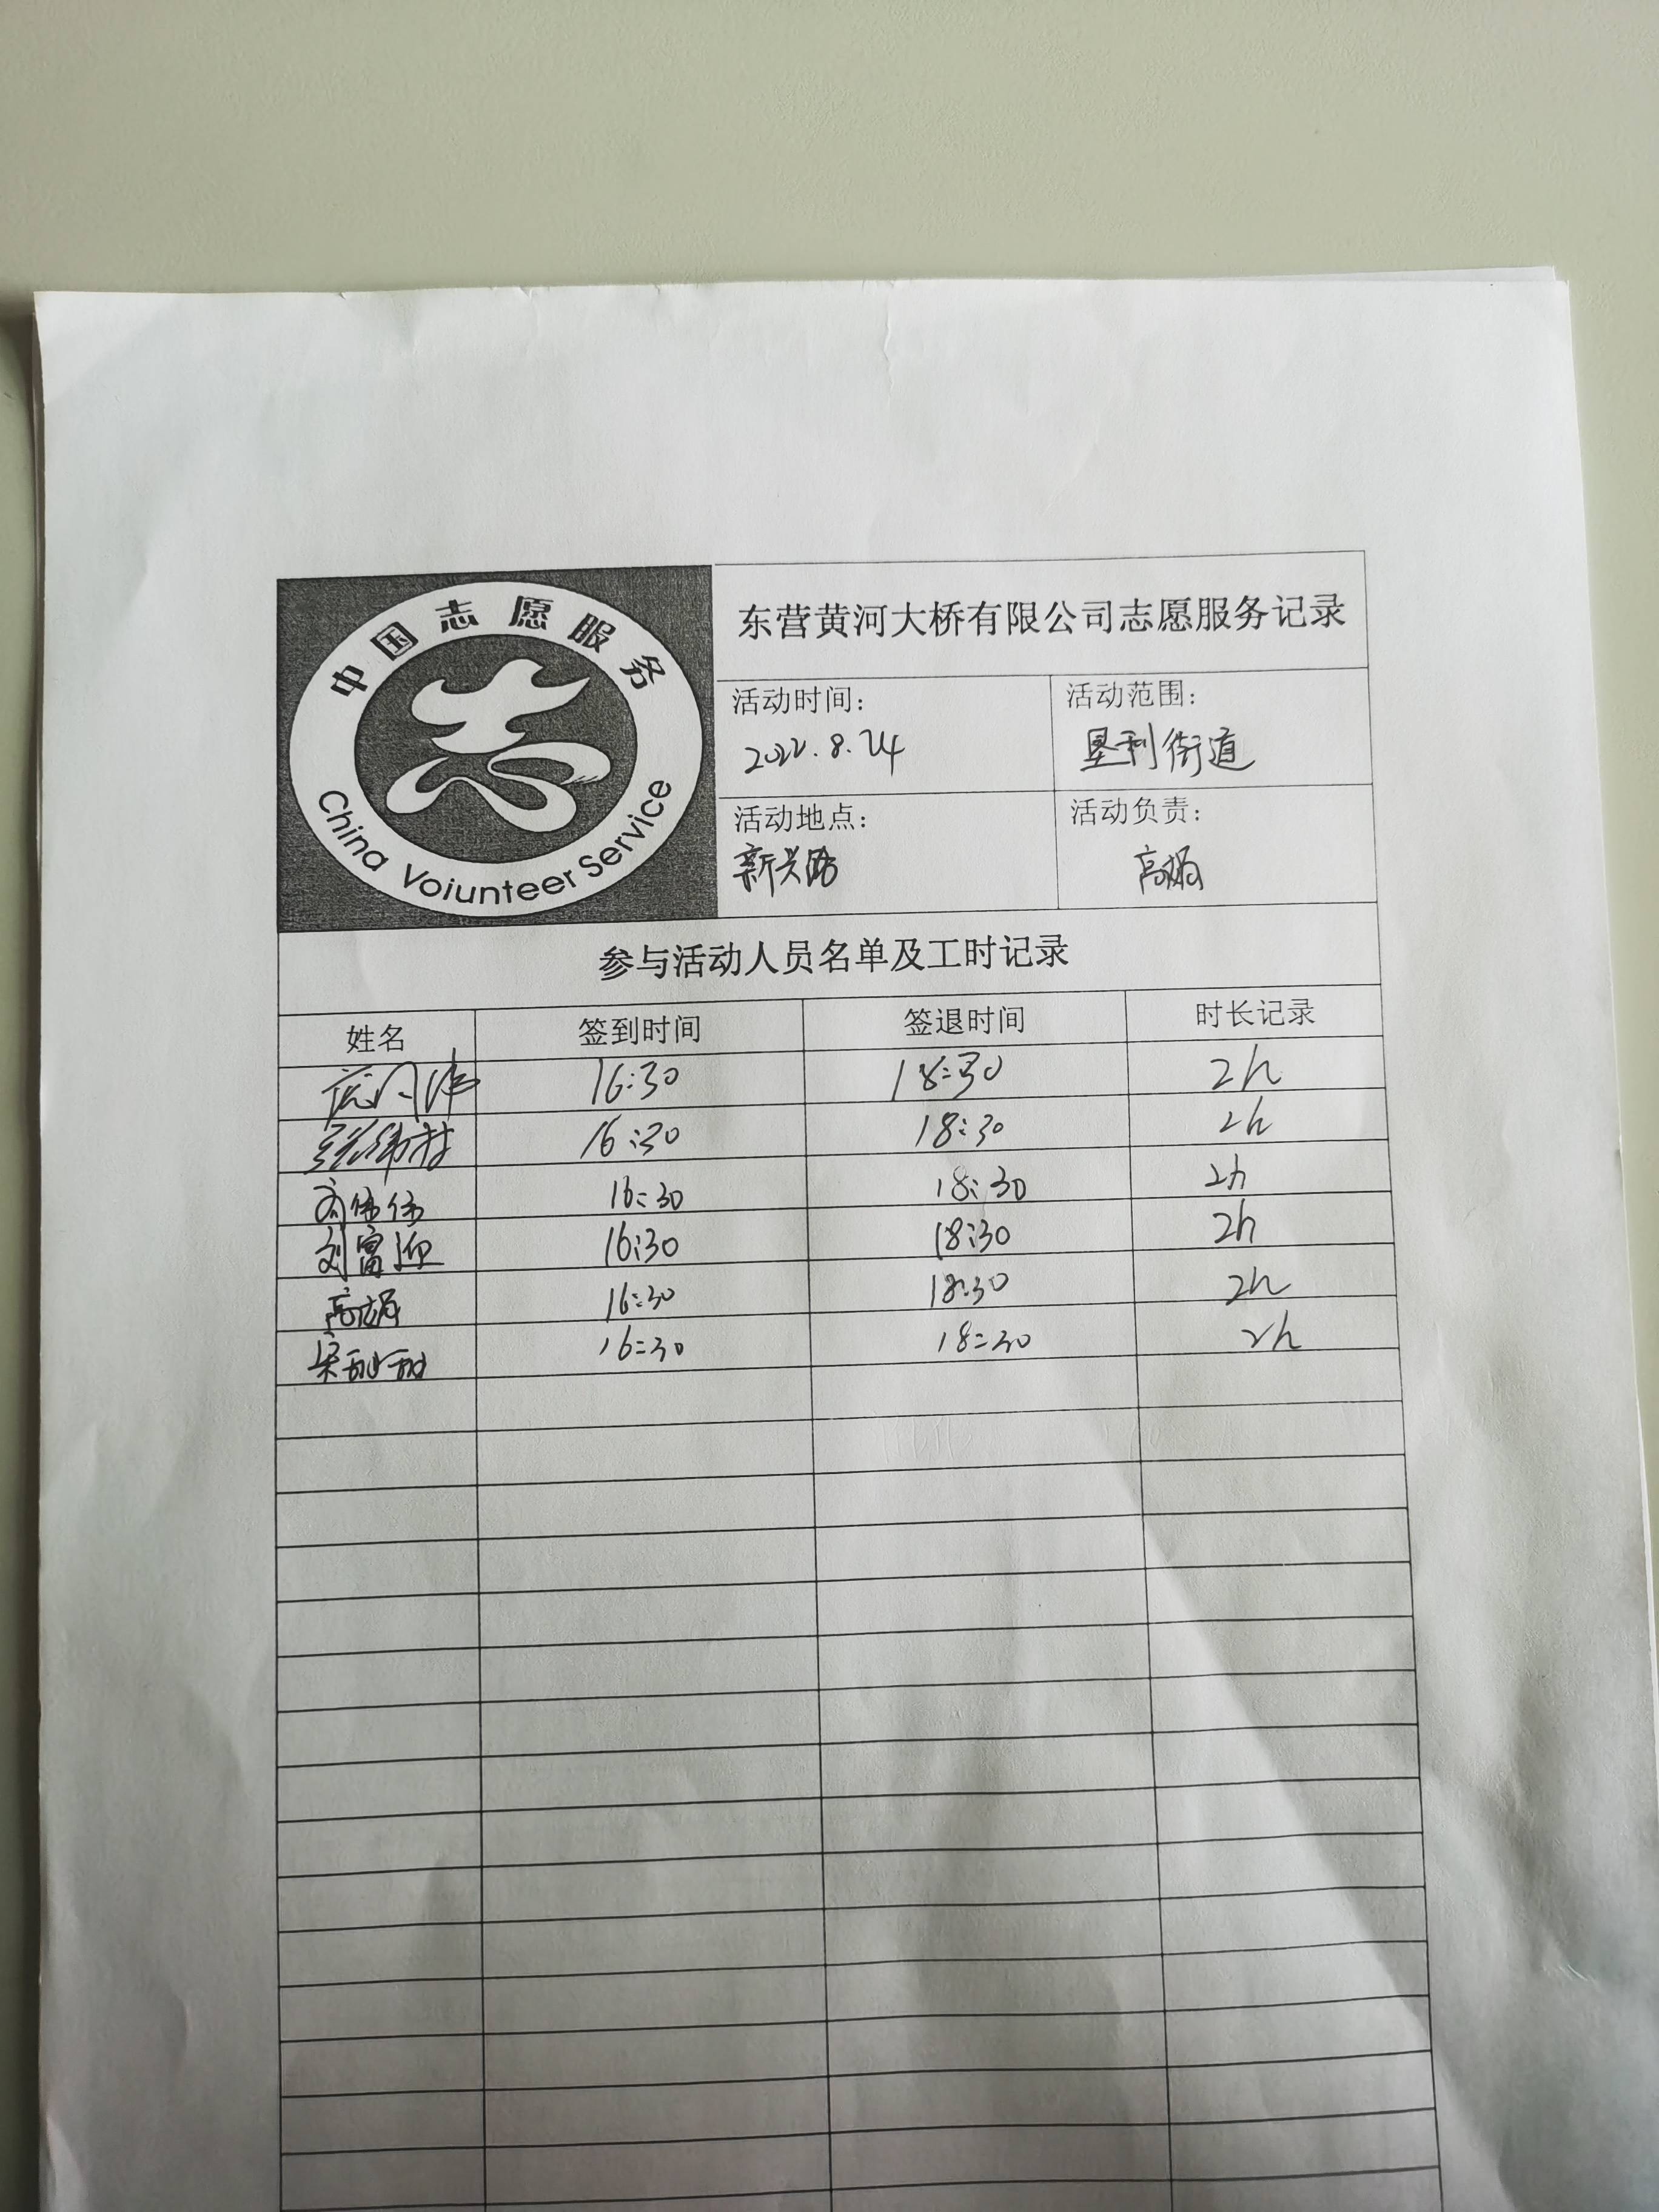 中国志愿服务
China Voiunteer Service
东营黄河大桥有限公司志愿服务记录
活动时间：
2022.8.24
活动范围：
垦利街道
活动地点：
新兴路
活动负责：
高娟
参与活动人员名单及工时记录
姓名 签到时间 签退时间 时长记录
16:30 18:30 2h
16:30 18:30 2h
16:30 18:30 2h
刘富迎 16:30 18:30 2h
高娟 16:30 18:30 2h
梁甜甜 16:30 18:30 2h